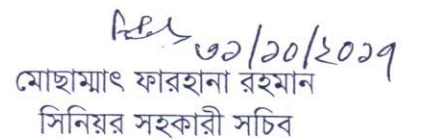 ৩১/১০/২০১৭
মোছাম্মাৎ ফারহানা রহমান
সিনিয়র সহকারী সচিব